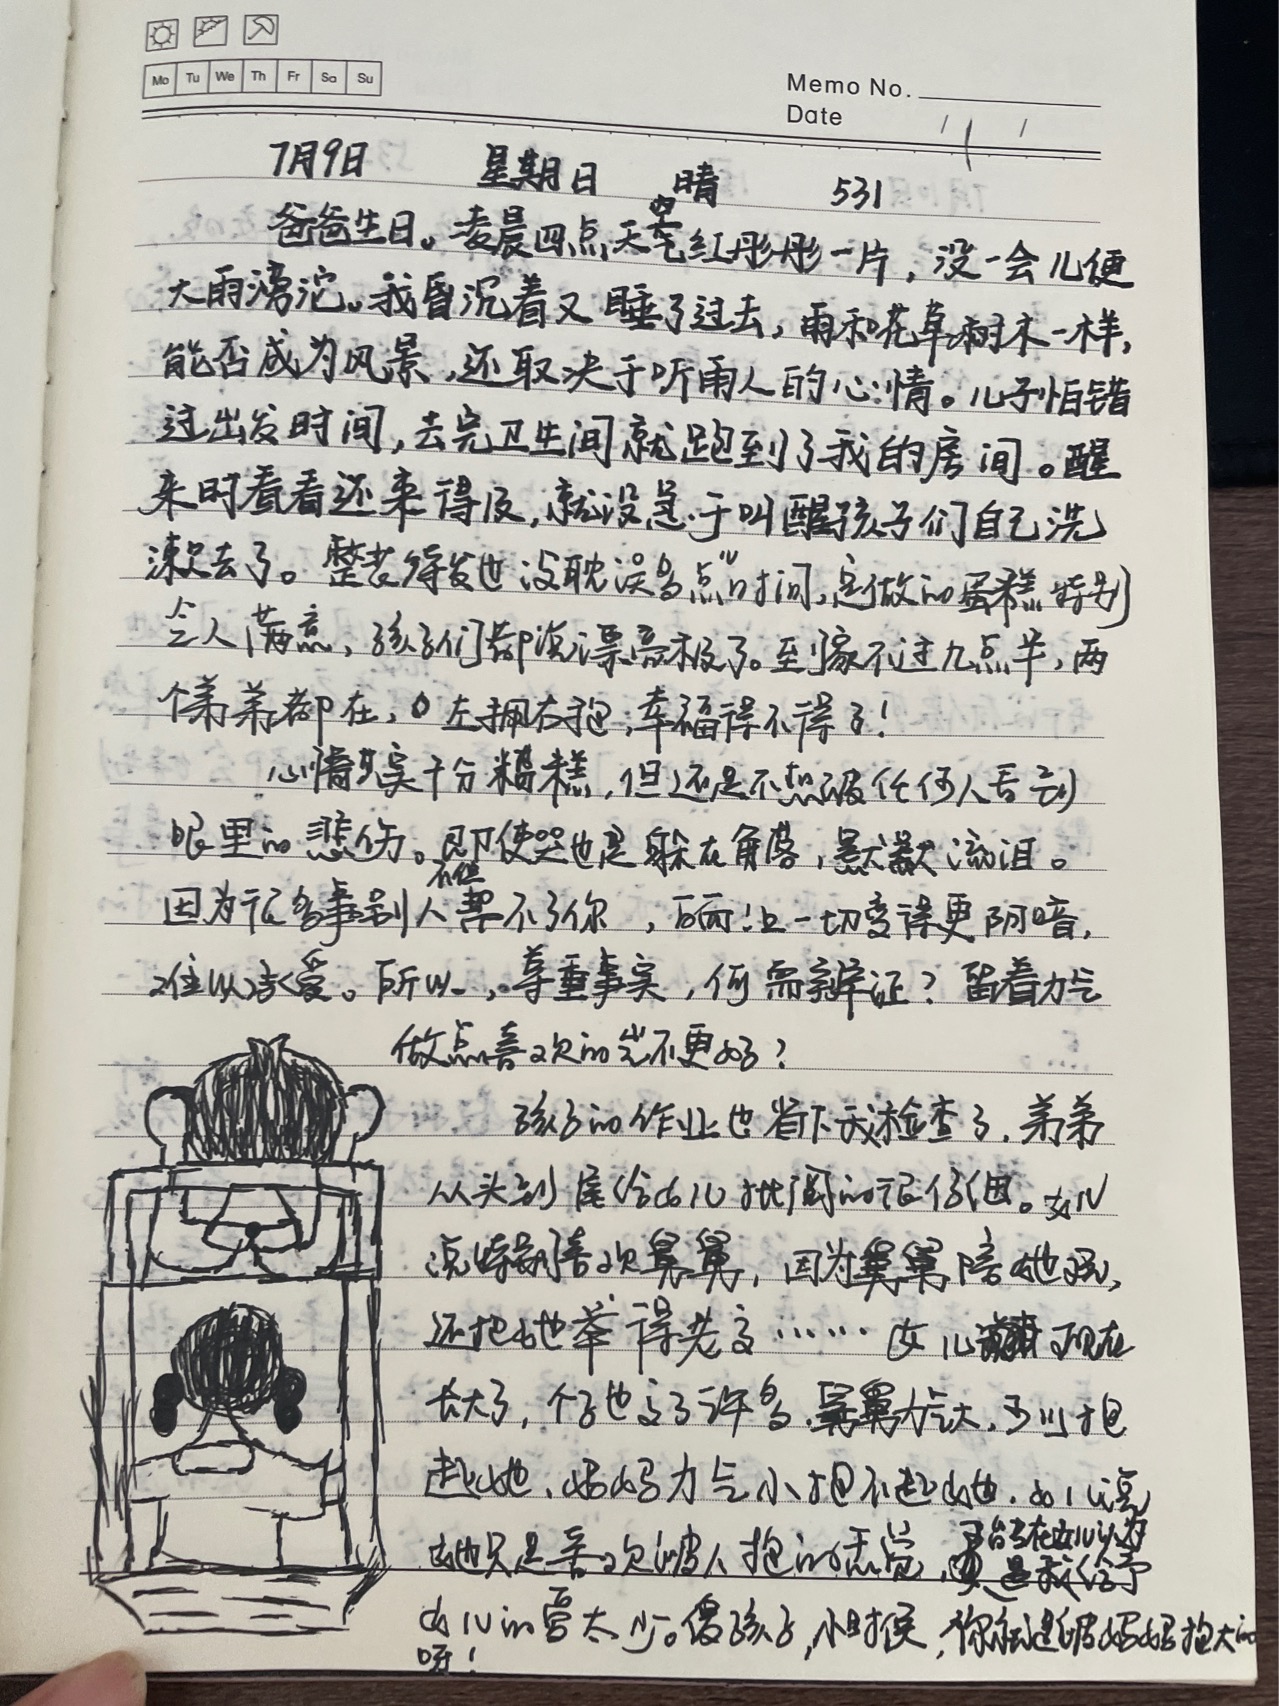 Mo Tu We Th Fr Sa Su
Memo No.
Date / /
7月9日 星期日 晴 531
爸爸生日。凌晨四点天空红彤彤一片，没一会儿便
大雨滂沱。我昏沉着又睡了过去，雨和花草树木一样，
能否成为风景，还取决于听雨人的心情。儿子怕错
过出发时间，去完卫生间就跑到了我的房间。醒
来时看看还来得及，就没急于叫醒孩子们自己洗
漱去了。整装待发也没耽误多点时间，定做的蛋糕特别
令人满意，孩子们都说漂亮极了。到家不过九点半，两
个弟弟都在，左拥右抱，幸福得不得了！
心情其实十分糟糕，但还是不想被任何人看到
眼里的悲伤。即使哭也是躲在角落，默默流泪。
因为很多事别人不但帮不了你，反而让一切变得更阴暗，
难以承受。所以，尊重事实，何需辩证？留着力气
做点喜欢的岂不更好？
孩子的作业也省下我检查了，弟弟
从头到尾给女儿批阅的很仔细。女儿
说特别喜欢舅舅，因为舅舅陪她玩，
还把她举得老高……女儿现在
长大了，个子也高了许多，舅舅力气大，可以抱
起她，妈妈力气小抱不起她，女儿说
她只是喜欢被人抱的感觉，可能在女儿认为
是我给予
女儿的爱太少。傻孩子，小时候，你就是被妈妈抱大的
呀！